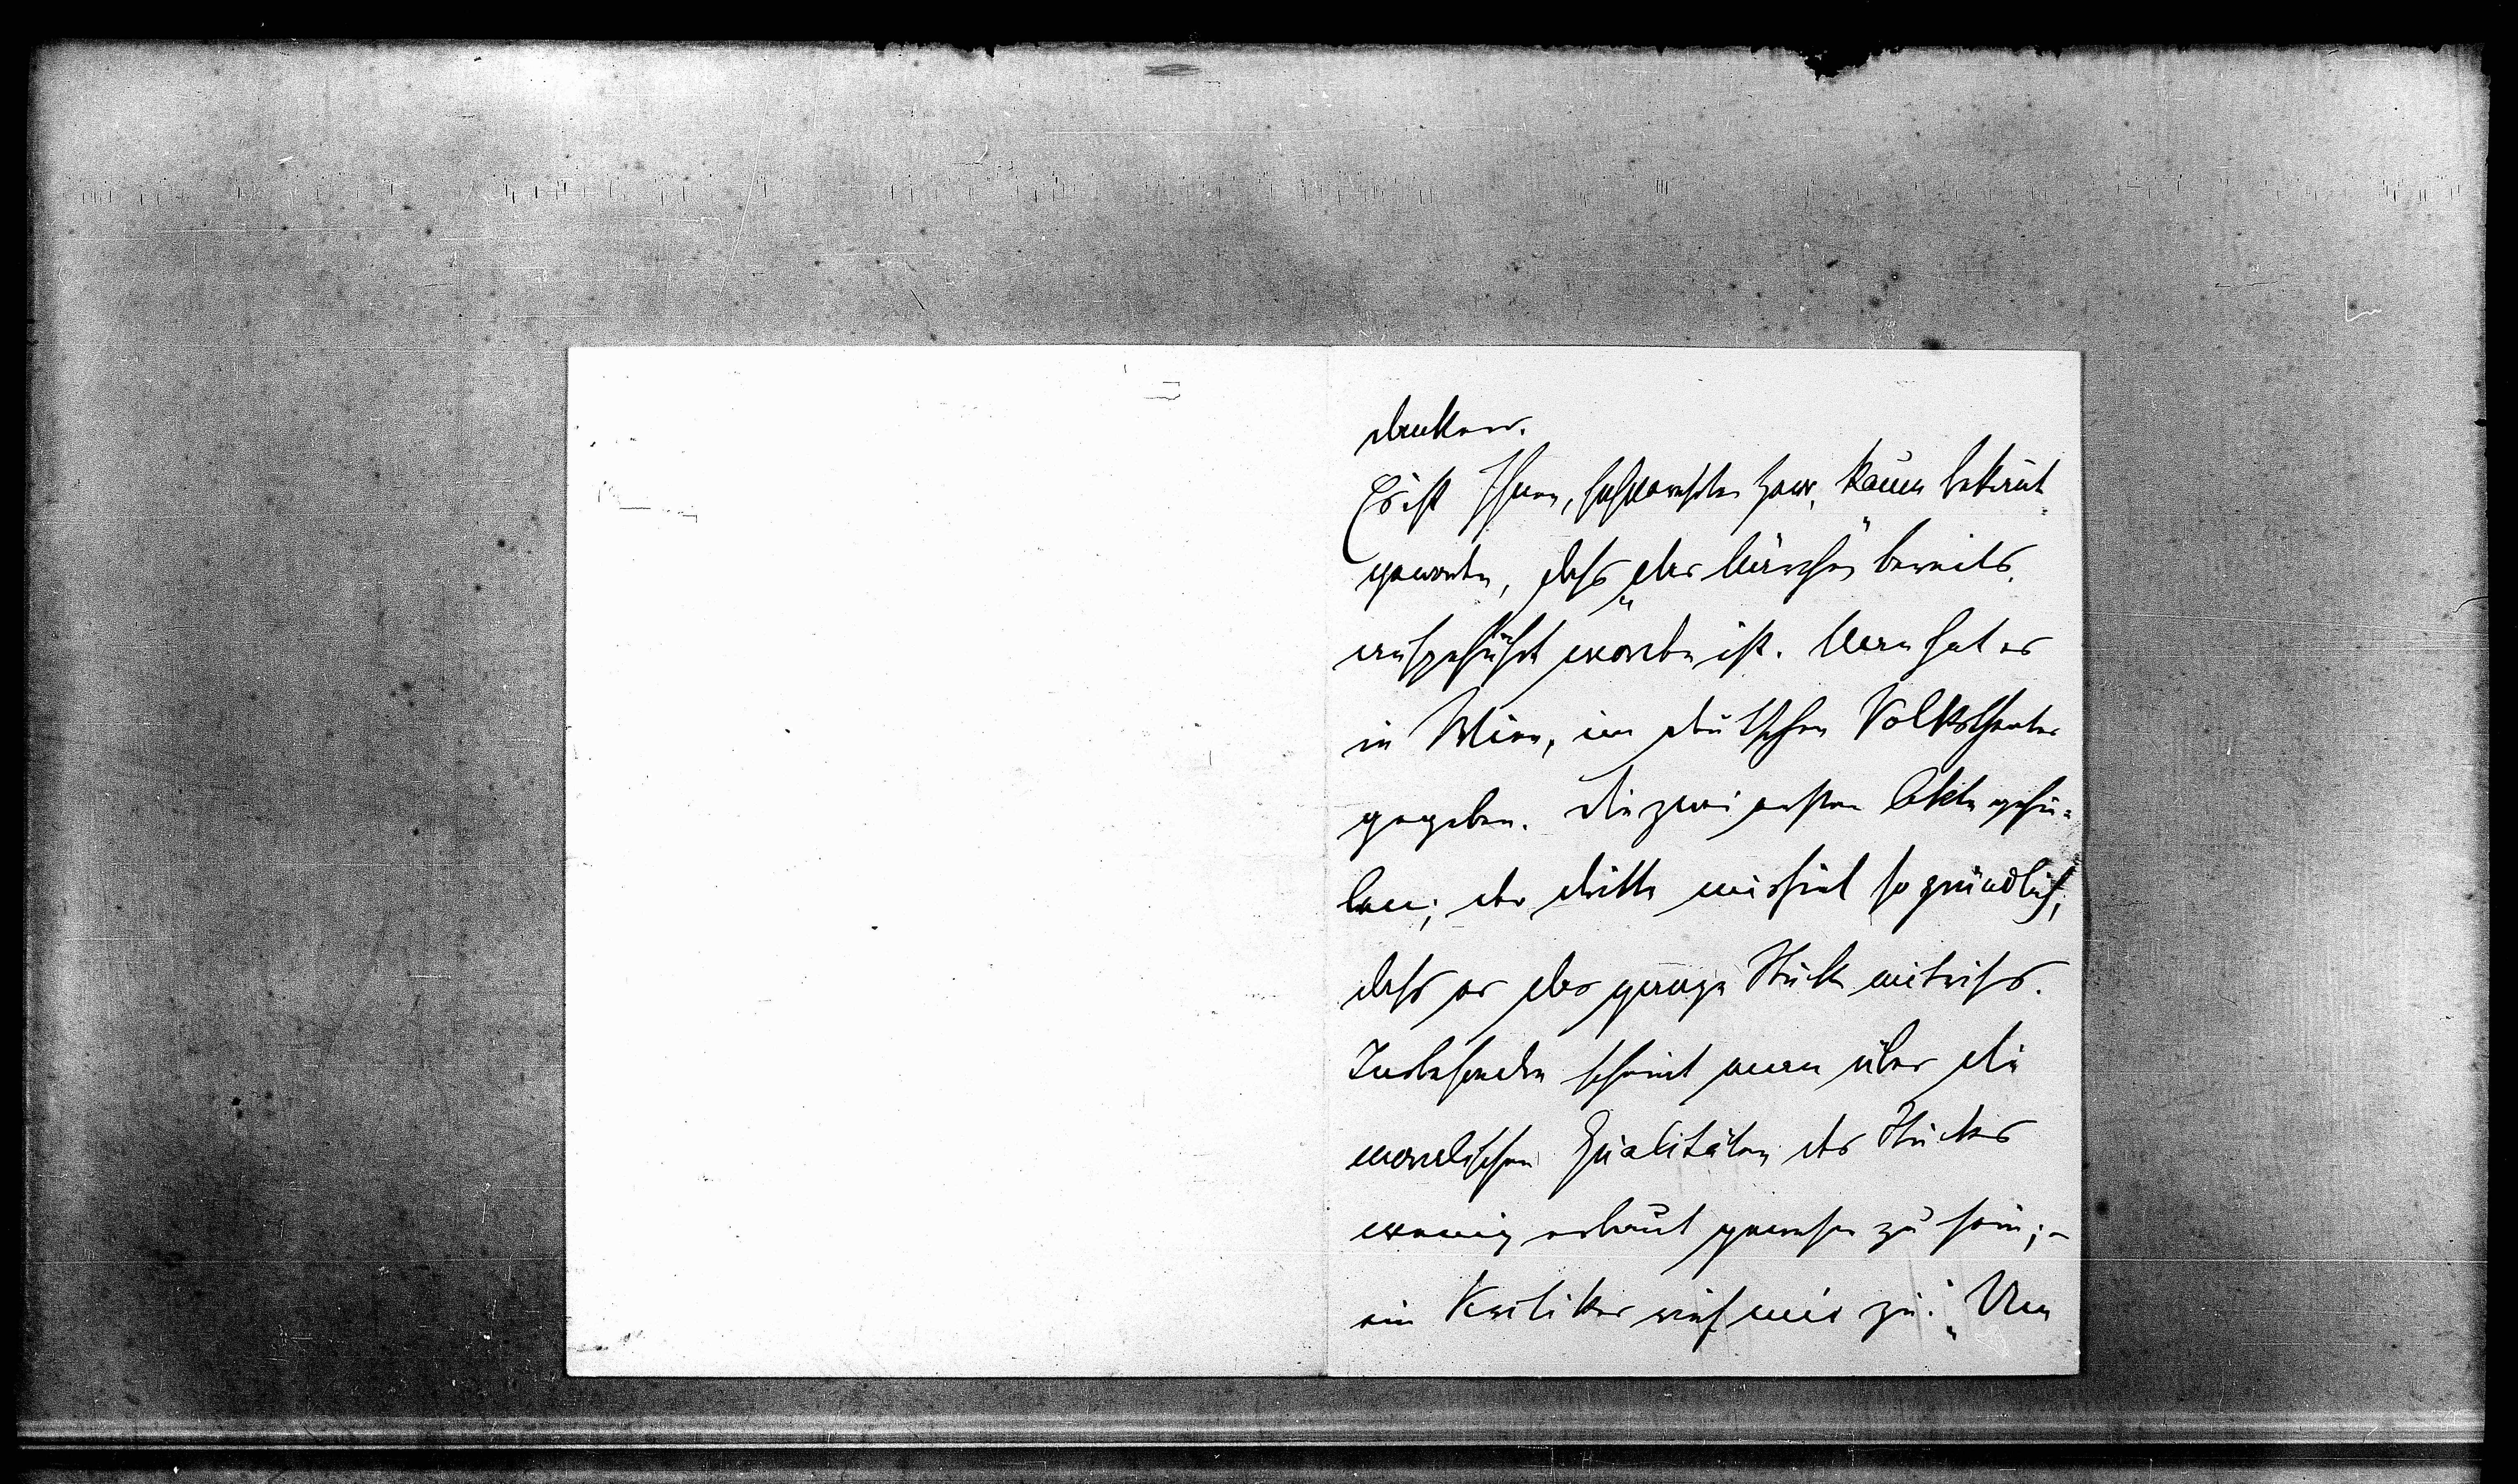 danken.
Es ist Ihnen, hochverehrter Herr, kaum bekannt
geworden, dass „das Märchen“ bereits
aufgeführt worden ist. Man hat es
in Wien, im deutschen Volkstheater
gegeben. Die zwei ersten Akte gefie-
len; der dritte misfiel so gründlich,
dass er das ganze Stück mitriss.
Insbesondre scheint man über die
moralischen Qualitäten des Stückes
wenig erbaut gewesen zu sein; –
ein Kritiker rief mir zu: „Um